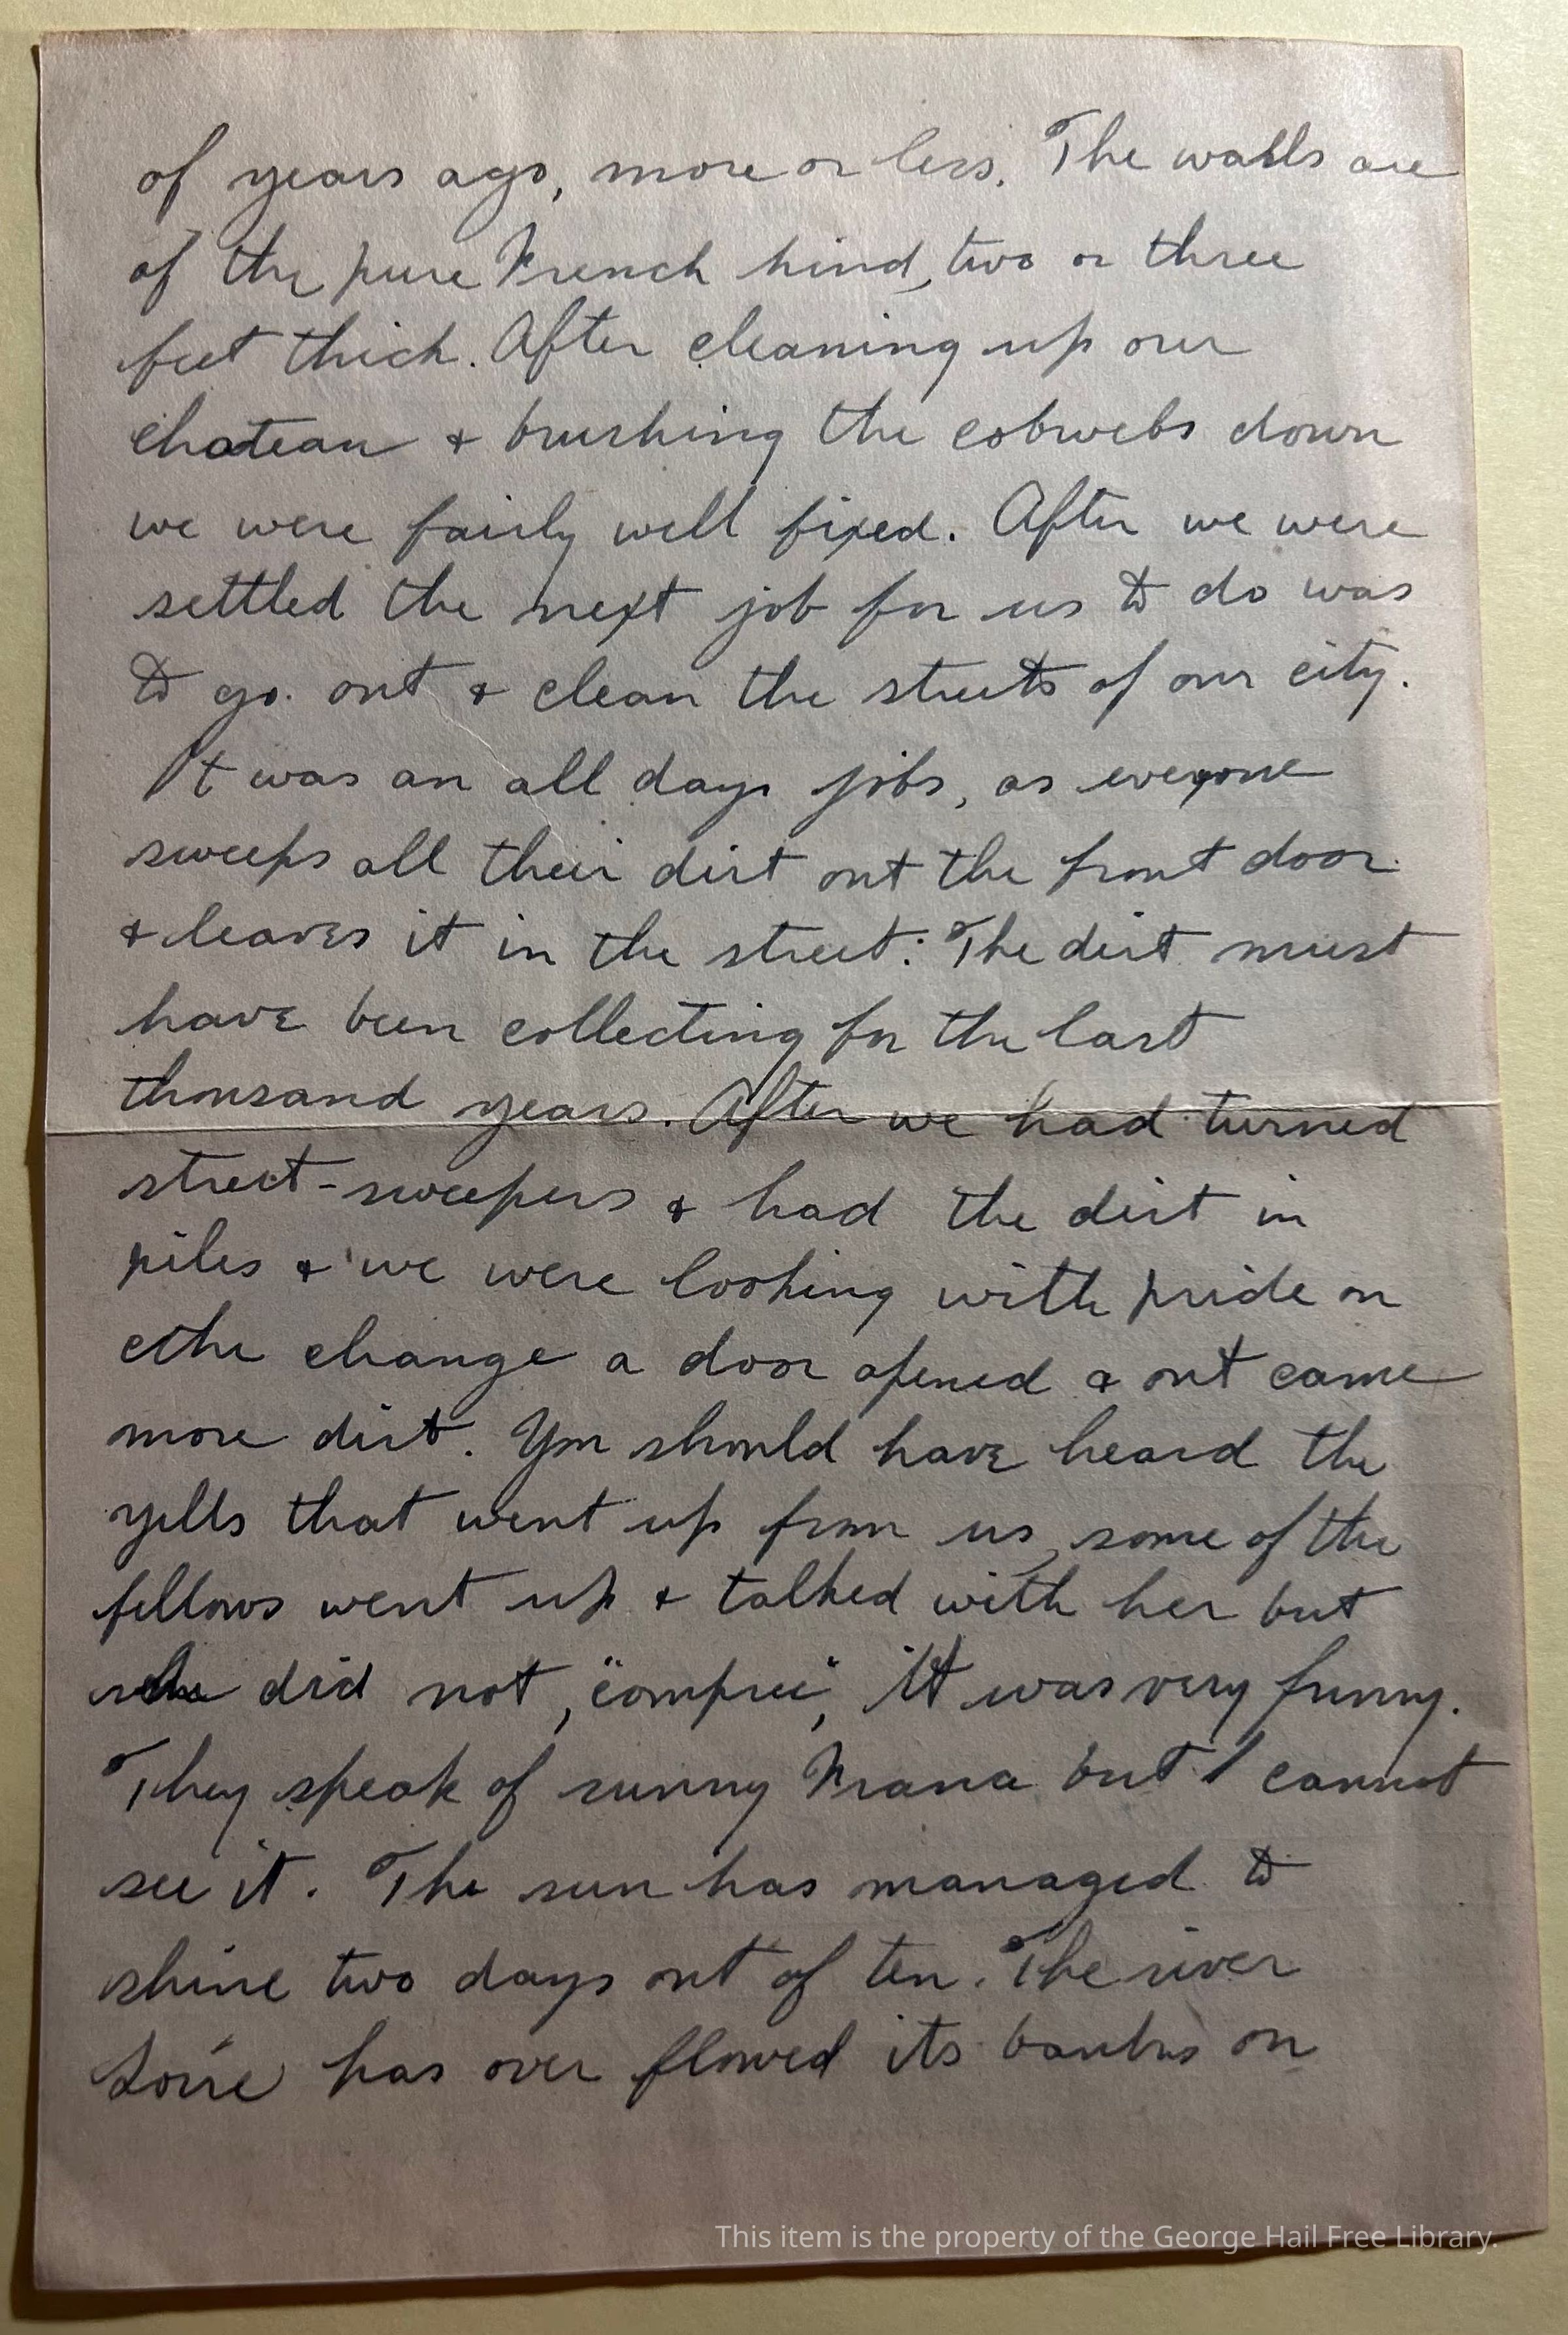 of years ago, more or less. The walls are
of the pure French kind, two or three
feet thick. After cleaning up our
chateau & brushing the cobwebs down
we were fairly well fixed. After we were
settled the next job for us to do was
to go. out & clean the streets of our city.
It was an all days jobs, as everyone
sweeps all their dirt out the front door
& leaves it in the street: The dirt must
have been collecting for the last
thousand years. After we had turned
street-sweepers & had the dirt in
piles & we were looking with pride on
the change a door opened & out came
more dirt. You should have heard the
yells that went up from us, some of the
fellows went up & talked with her but
she did not, "comprie", It was very funny.
They speak of sunny France but I cannot
see it. The sun has managed to
shine two days out of ten. The river
Loire has over flowed its banks on
This item is the property of the George Hail Free Library.